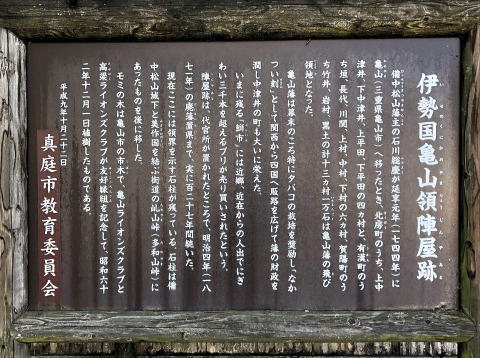 伊勢国亀山領陣屋跡
備中松山藩主の石川総慶が延享元年(一七四四年)に
亀山(三重県亀山市)へ移ったとき、北房町のうち、上中
津井、下中津井、上平田、下平田の四カ村と、有漢町のう
ち垣、長代、川関、上村、中村、下村の六カ村、賀陽町のう
ち竹井、岩村、黒土の計十三カ村一万石は亀山藩の飛び
領地となった。
亀山藩は幕末のころ特にタバコの栽培を奨励し、「なか
つい刻」として関西から四国へ販路を広げて藩の財政を
潤し中津井の町も大いに栄えた。
いまに残る「鰤市」には近郷、近在からの人出でにぎ
わい三千本を超えるブリが売り買いされたという。
陣屋跡は、代官所が置かれたところで、明治四年(一八
七一年)の廃藩置県まで、実に百二十七年間続いた。
現在、ここには領界を示す石柱が残っている。石柱は備
中松山城下と美作国を結ぶ街道の「乢山峠」「多和山峠」に
あったものを後に移した。
モミの木は亀山市の市木で、亀山ライオンズクラブと
高梁ライオンズクラブが友好縁組を記念して、昭和六十
二年十二月一日植樹したものである。
平成九年十月二十二日
真庭市教育委員会